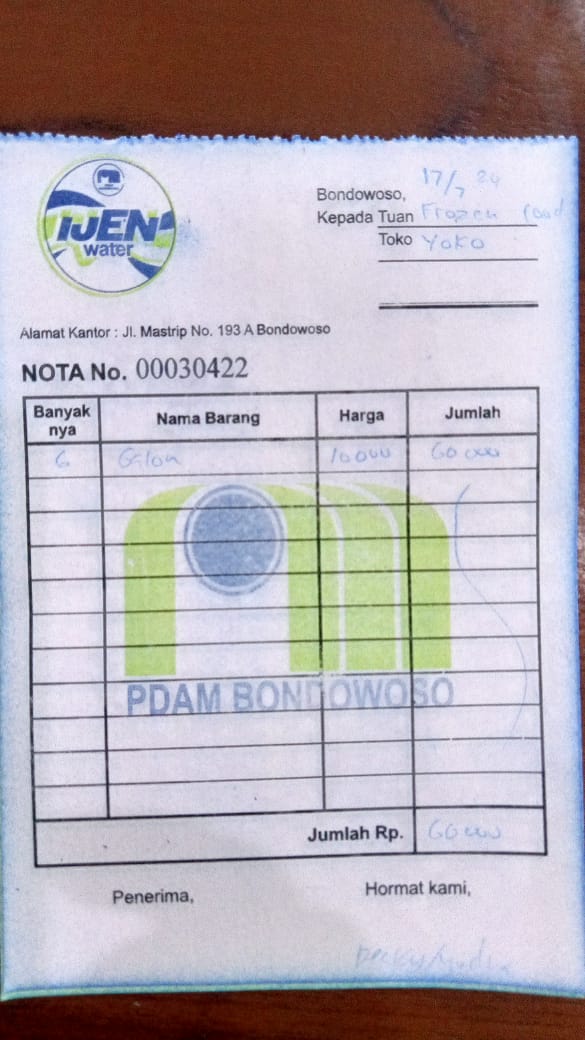 IJEN
water
Bondowoso, 17/7 24
Kepada Tuan Frozen food
Toko Yoko
Alamat Kantor : Jl. Mastrip No. 193 A Bondowoso
NOTA No. 00030422
Banyak nya Nama Barang Harga Jumlah
6 Galon 10000 60000
PDAM BONDOWOSO
Jumlah Rp. 60000
Penerima, Hormat kami,